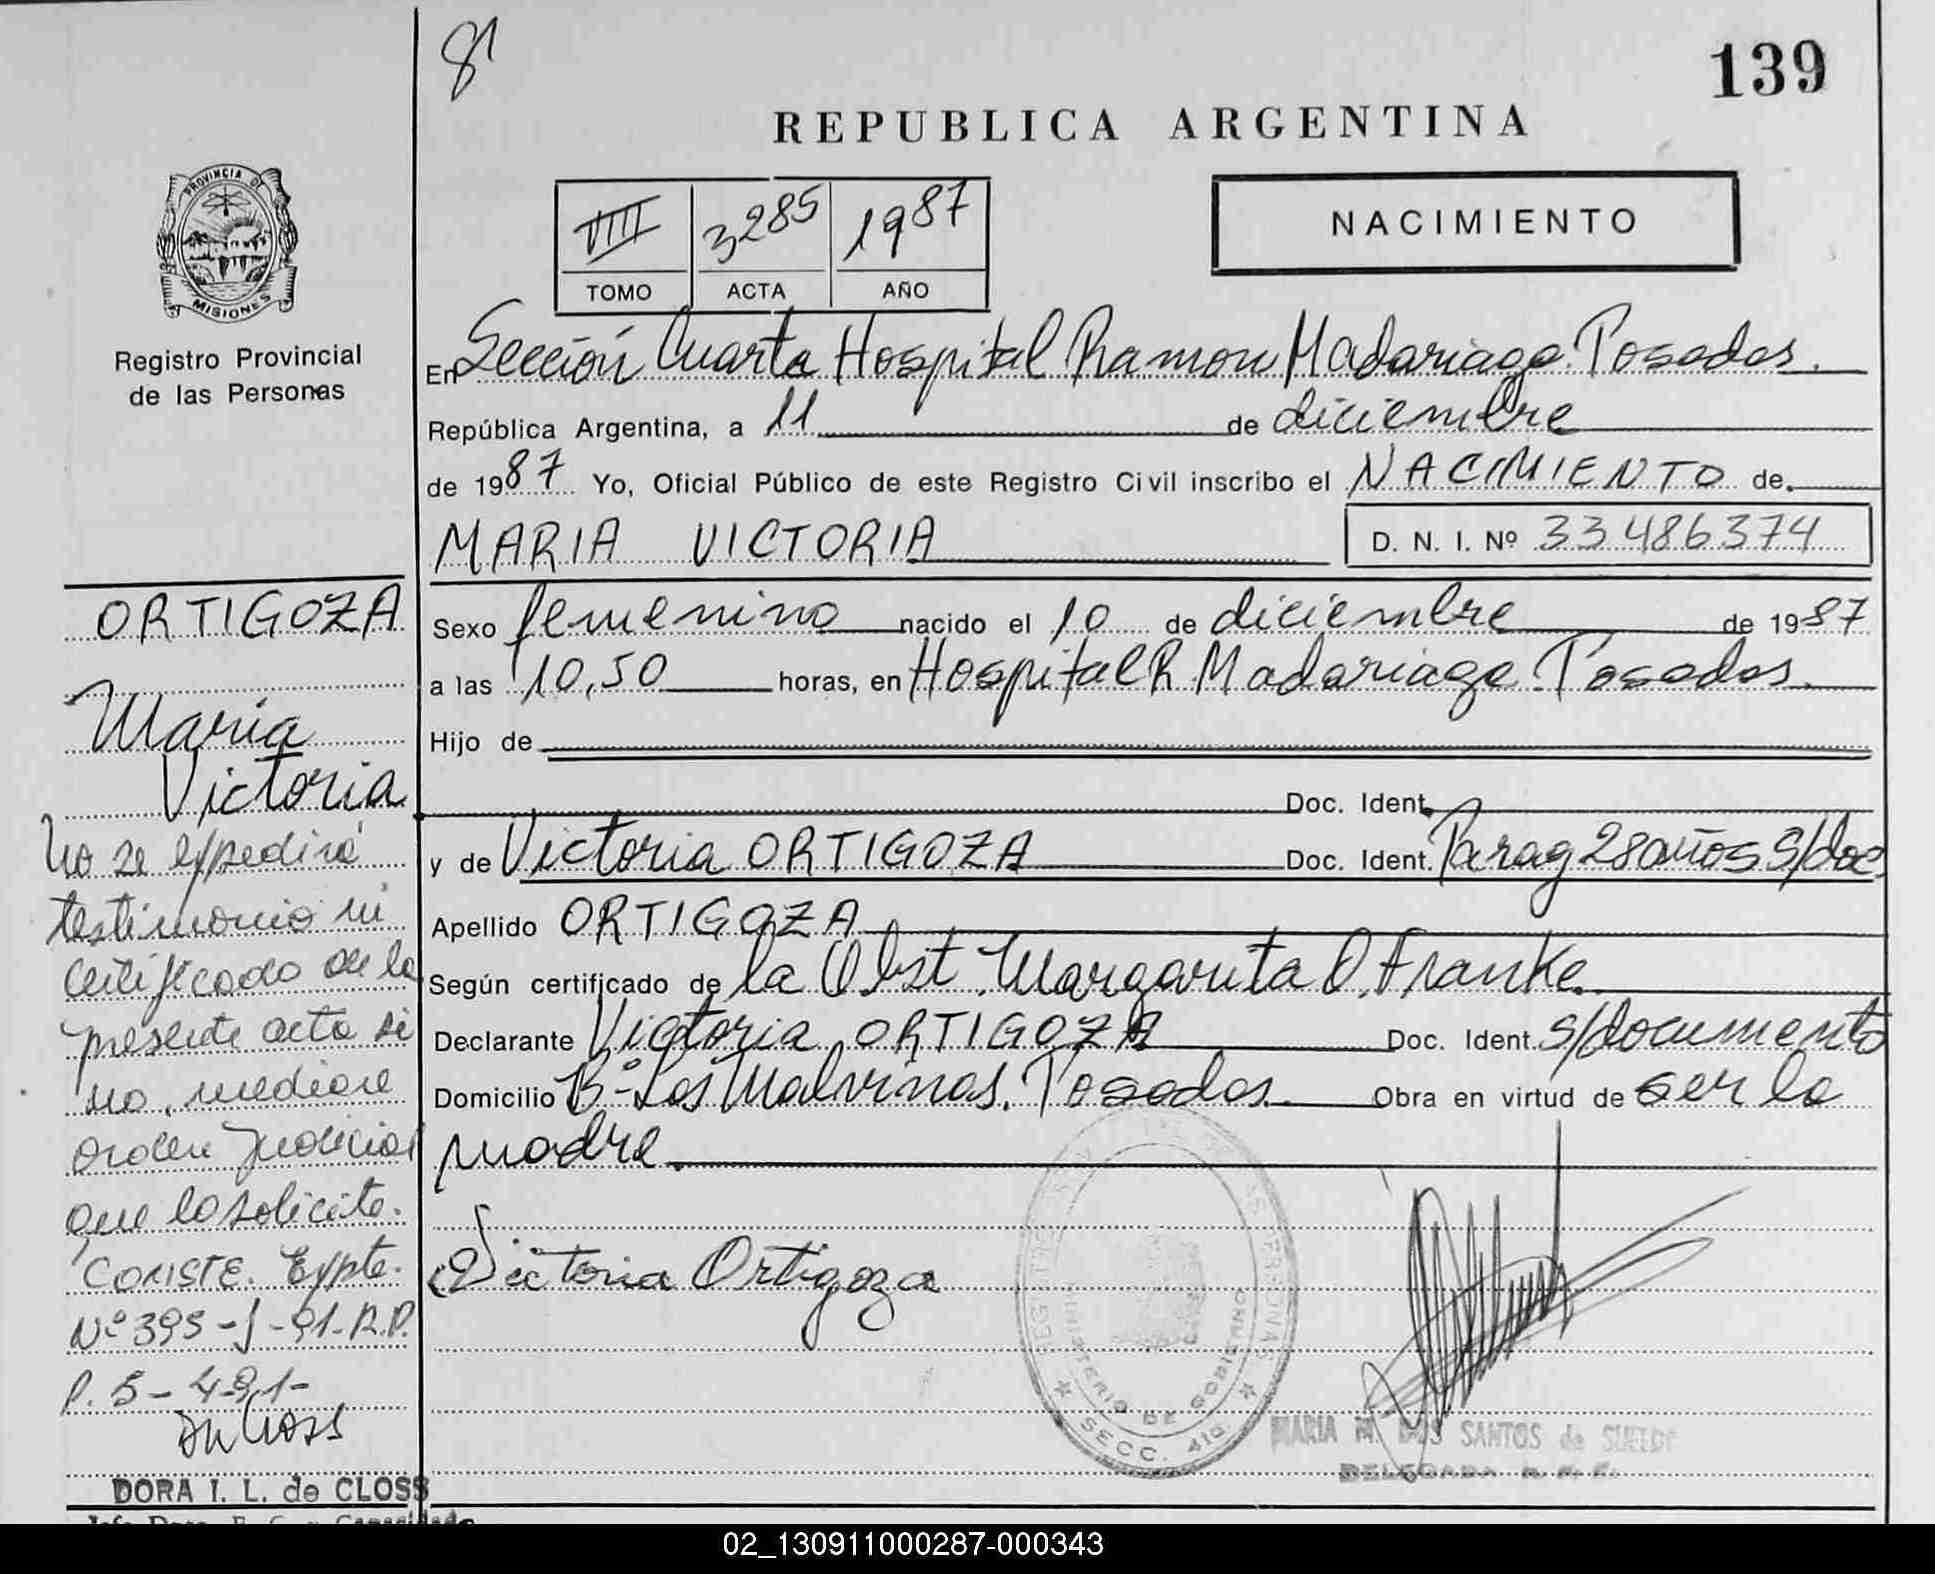 81
139
REPUBLICA ARGENTINA
PROVINCIA DE
MISIONES
Registro Provincial
de las Personas
VIII 3285 1987
TOMO ACTA AÑO
NACIMIENTO
En Sección Cuarta Hospital Ramon Madariaga. Posadas.
República Argentina, a 11 de diciembre
de 1987 Yo, Oficial Público de este Registro Civil inscribo el NACIMIENTO de
MARIA VICTORIA
D. N. I. Nº 33486374
Sexo femenino nacido el 10 de diciembre de 1987
a las 10,50 horas, en Hospital R Madariaga. Posadas.
Hijo de
Doc. Ident.
y de Victoria ORTIGOZA Doc. Ident. Parag 28 años S/doc
Apellido ORTIGOZA
Según certificado de la Obst. Margarita O. Franke
Declarante Victoria ORTIGOZA Doc. Ident. S/documento
Domicilio Bº Las Malvinas. Posadas. Obra en virtud de ser la
madre.
Victoria Ortigoza
MINISTERIO DE GOBIERNO
SECC. 4ta.
MARIA M. DOS SANTOS de
DELEGADA
ORTIGOZA
Maria
Victoria
No se expedirá
testimonio ni
certificado de la
presente acta si
no, mediare
orden judicial
que lo solicite.
CONSTE. Expte.
Nº 395-J-91-R.P.
P. 5-4-91-
DORA I. L. de CLOSS
02_130911000287-000343